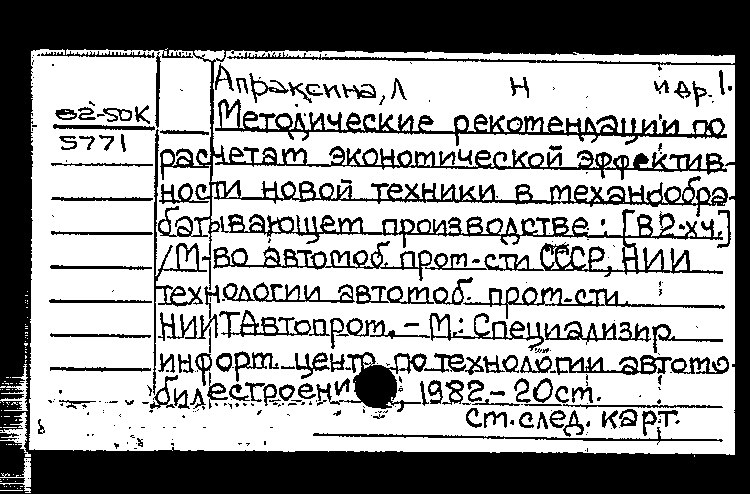 Апраксина, Л Н и др. 1.
82-50К
Методические рекомендации по
5771
расчетам экономической эффектив-
ности новой техники в механообра-
батывающем производстве : [В 2-х ч.]
/М-во автомоб. пром-сти СССР, НИИ
технологии автомоб. пром-сти
НИИТАвтопром. – М.: Специализир.
информ. центр по технологии автомо-
билестроения, 1982. – 20см.
См. след. карт.